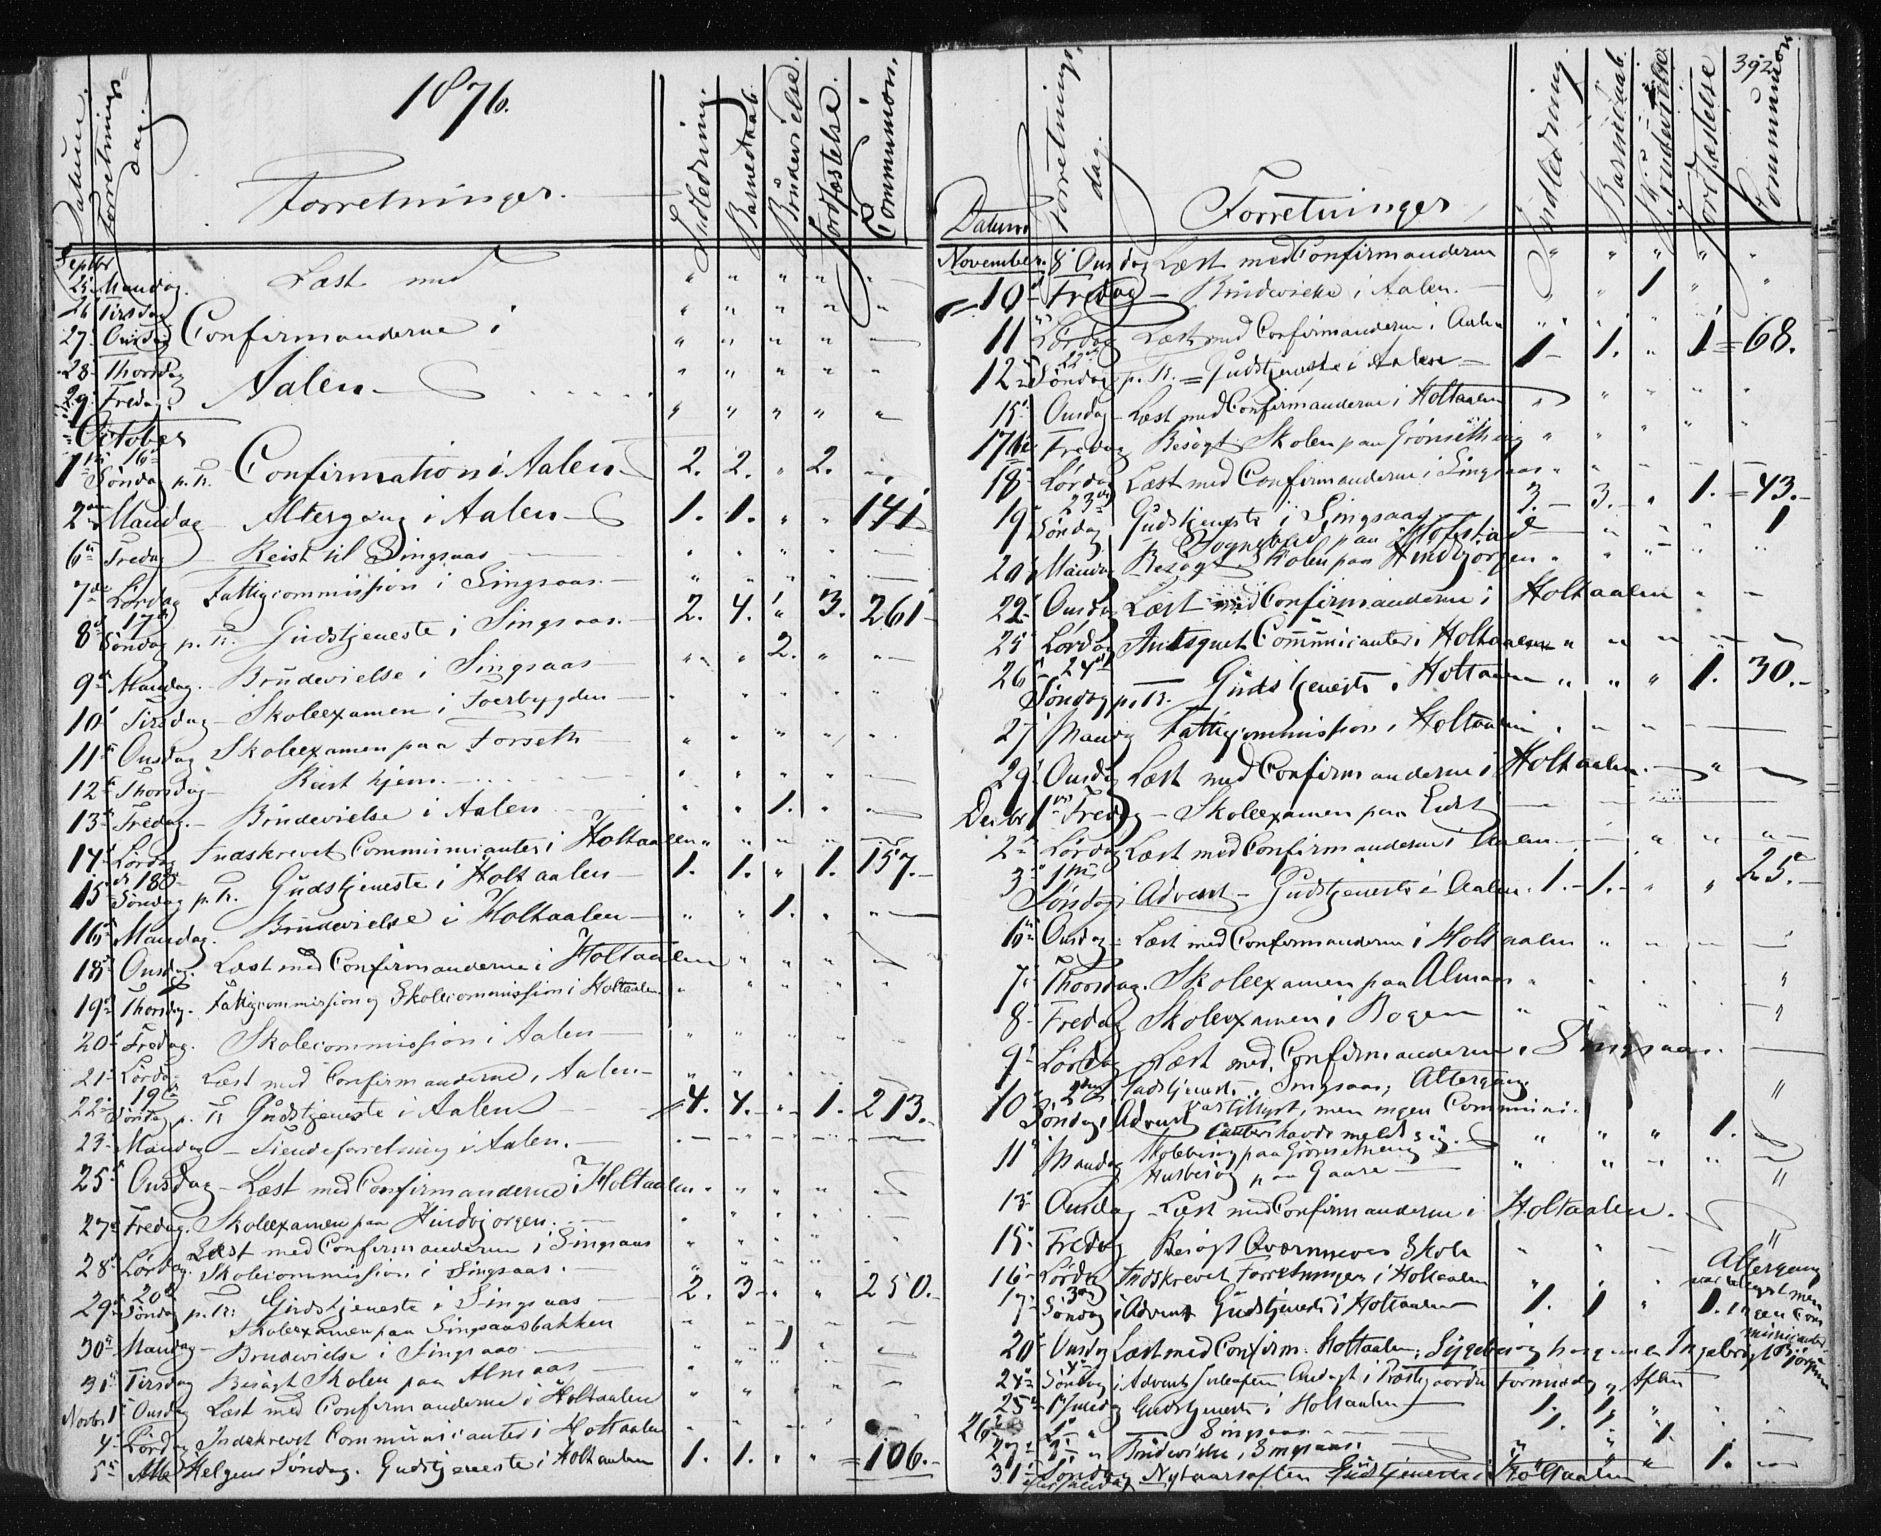 1876.
Datum. Forretnings dag. Forretninger. Indledning. Barnedaab. Brudevielse. Jordfæstelse. Communion.
Septbr
25 Mandag. Læst med
26 Tirsdag
27 Onsdag Confirmanderne i
28 Thorsdag
29 Fredag. Aalen
October
1ste 16de Søndag p. Tr. Confirmation i Aalen 2. 2. " 2.
2den Mandag Altergang i Aalen 1. 1. " " 141
6te Fredag Reist til Singsaas
7de Lørdag Fattigcommission i Singsaas.
8de 17de Søndag p. Tr. Gudstjeneste i Singsaas. 2. 4. " 3. 261
9de Mandag. Brudevielse i Singsaas 2.
10 Tirsdag Skoleexamen i
11 Onsdag Skoleexamen paa Forseth
12 Thorsdag Reist hjem.
13 Fredag. Brudevielse i Aalen 1.
14. Lørdag Indskrevet Communicanter i Holtaalen
15 18de Søndag p. Tr. Gudstjeneste i Holtaalen 1. 1. " 1. 157.
16 Mandag. Brudevielse i Holtaalen 1.
18 Onsdag. Læst med Confirmanderne i Holtaalen
19 Thorsdag. Fattigcommission og Skolecommission i Holtaalen
20 Fredag. Skolecommission i Aalen
21 Lørdag Læst med Confirmanderne i Aalen
22 19de Søndag p. Tr Gudstjeneste i Aalen 4. 4. " 1. 213.
23 Mandag Tiendeforretning i Aalen.
25 Onsdag Læst med Confirmanderne i Holtaalen
27 Fredag. Skoleexamen paa Hindbjorgen.
28 Lørdag. Læst med Confirmanderne i Singsaas
Skolecommission i Singsaas.
29 20de Søndag p. Tr: Gudstjeneste i Singsaas 2. 3 " " 250.
Skoleexamen paa Singsaasbakken
30 Mandag Brudevielse i Singsaas 1
31 Tirsdag Besøgt Skolen paa Almaas
Novbr. 1 Onsdag Læst med Confirmanderne i Holtaalen
4 Lørdag Indskrevet Communicanter i Holtaalen
5 Alle Helgens Søndag. Gudstjeneste i Holtaalen 1. 1. " " 106.
392
Datum Forretnings dag. Forretninger Indledning Barnedaab. Brudevielse Jordfæstelse Communion
November. 8 Onsdag Læst med Confirmanderne
10 Fredag Brudevielse i Aalen. 1
11 Lørdag Læst med Confirmanderne i Aalen
12 Søndag p. Tr. Gudstjeneste i Aalen 1 1. " 1 68.
15 Onsdag Læst med Confirmanderne i Holtaalen
17de Fredag Besøgt Skolen paa Grønsetheng
18 Lørdag Læst med Confirmanderne i Singsaas
19 23de Søndag Gudstjeneste i Singsaas 3. 3. " 1. 43.
Sognebud paa 1
20 Mandag Besøgt Skolen paa Hindbjorgen
22 Onsdag Læst med Confirmanderne i Holtaalen
25 Lørdag Communicanter i Holtaalen
26 24de Søndag p. Tr. Gudstjeneste i Holtaalen " " " 1. 30.
27 Mandag Fattigcommission i Holtaalen
29 Onsdag Læst med Confirmanderne i Holtaalen.
Decbr 1 Fredag Skoleexamen paa
2 Lørdag Læst med Confirmanderne i Aalen
3 1ste Søndag i Advent Gudstjeneste i Aalen. 1. 1. " " 25.
6 Onsdag Læst med Confirmanderne i Holtaalen
7 Thorsdag. Skoleexamen paa Almaas
8 Fredag Skoleexamen i Bogen
9 Lørdag Læst med Confirmanderne i Singsaas.
10 2den Søndag i Advent Gudstjeneste i Singsaas; Altergang
var tillyst, men ingen Communi-
canter havde meldt sig. " " " 1.
11 Mandag
Husbesøg paa Gaare
13 Onsdag Læst med Confirmanderne i Holtaalen.
15 Fredag Besøgt Skole
16 Lørdag Indskrevet Forretninger i Holtaalen
17 3die Søndag i Advent Gudstjeneste i Holtaalen 1. 1 " 1. Altergang var tillyst men ingen Communicanter
20 Onsdag Læst med Confirm. Holtaalen; Sygebesøg hos Ingebrigt
24 4de Søndag i Advent Juleaften Andagt i Præstgaarden Formiddag Aften
25 1ste Juledag Gudstjeneste i Holtaalen 1. 1.
26 2 " Singsaas 1.
27 3 " Brudevielse i Singsaas. 1.
31 Søndag Nytaarsaften Gudstjeneste i Holtaalen 1.